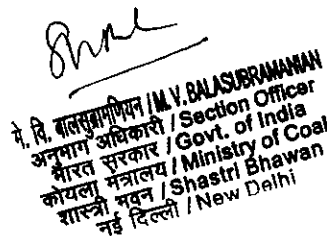 मे. वि. बालसुब्रामणियन / M. V. BALASUBRAMANIAN
अनुभाग अधिकारी / Section Officer
भारत सरकार / Govt. of India
कोयला मंत्रालय / Ministry of Coal
शास्त्री भवन / Shastri Bhawan
नई दिल्ली / New Delhi